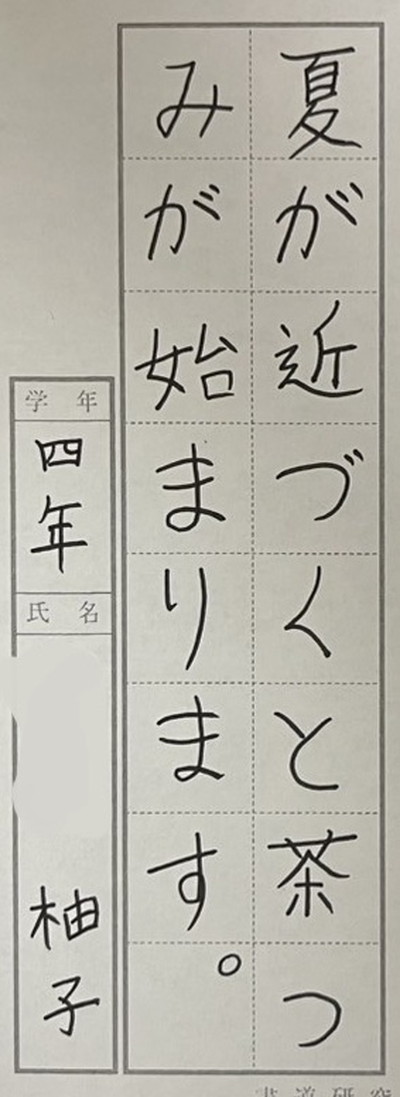 夏が近づくと茶つ
みが始まります。
学年
四年
氏名
柚子